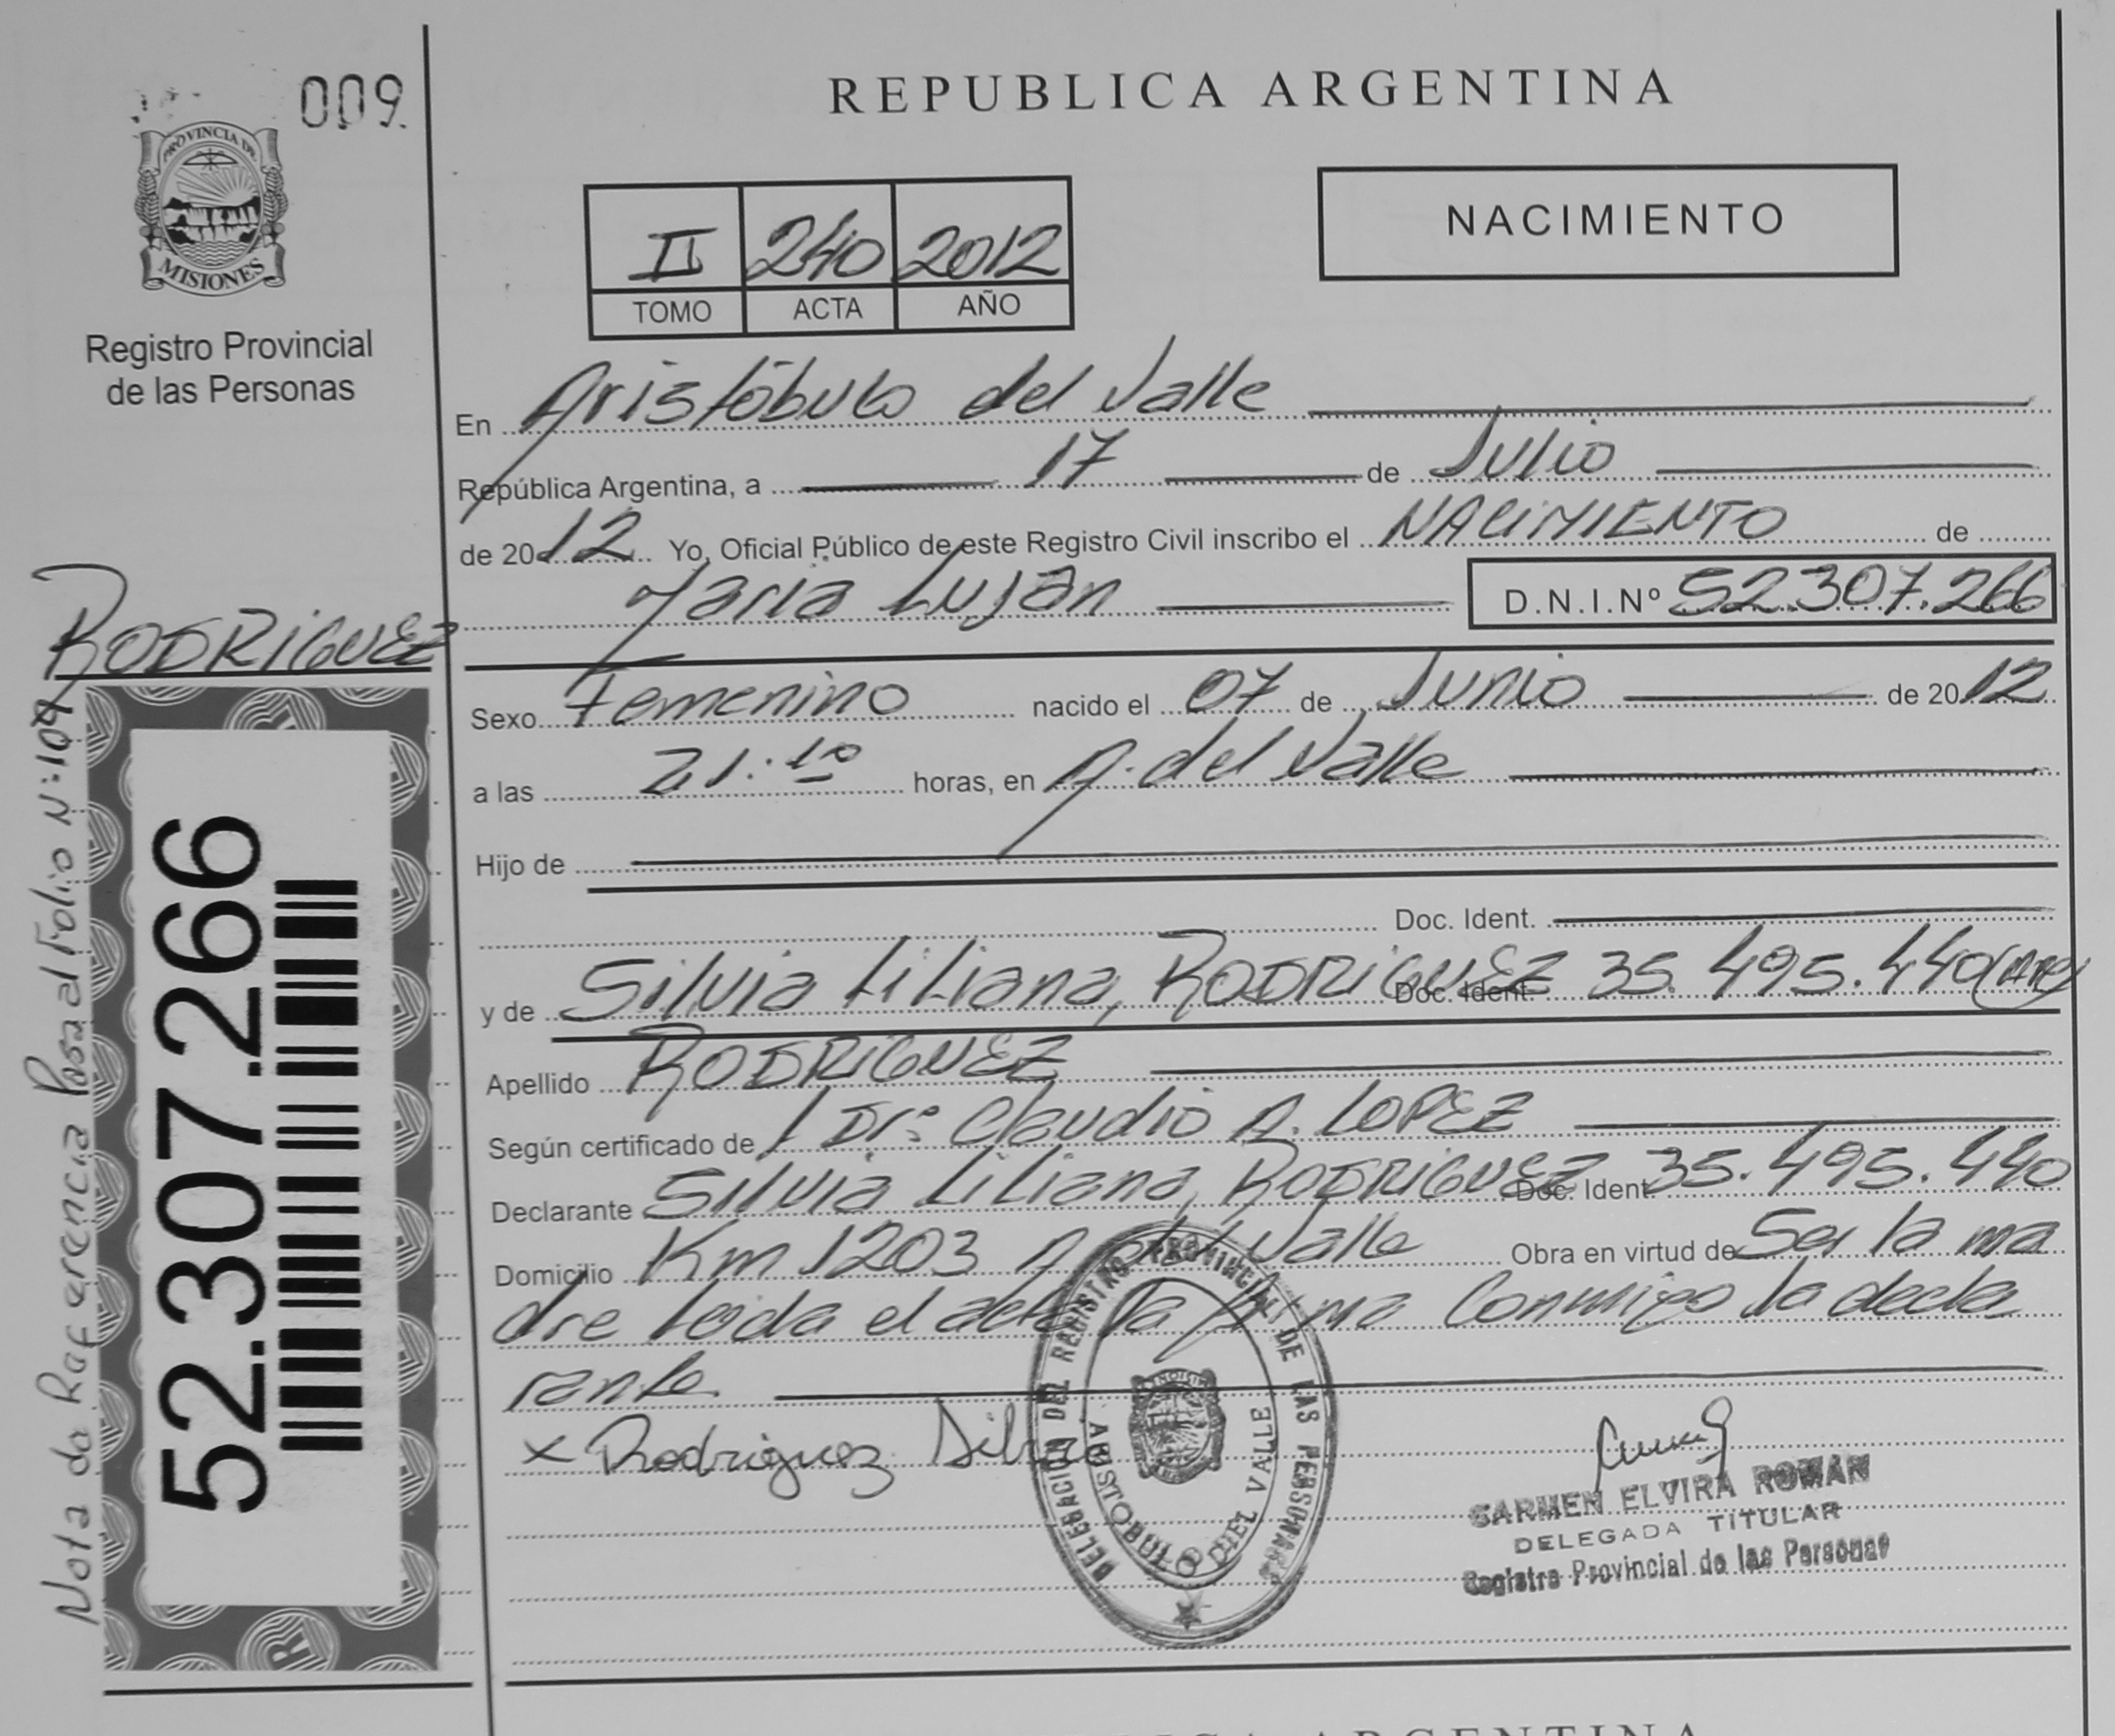 009
PROVINCIA DE
MISIONES
Registro Provincial
de las Personas
RODRIGUEZ
Nota de Referencia Pasa al Folio N: 109
52.307.266
REPUBLICA ARGENTINA
II 240 2012
TOMO ACTA AÑO
NACIMIENTO
En Aristóbulo del Valle
República Argentina, a 17 de Julio
de 2012 Yo, Oficial Público de este Registro Civil inscribo el NACIMIENTO de
María Luján D.N.I.Nº 52.307.266
Sexo Femenino nacido el 07 de Junio de 2012
a las 21:10 horas, en A. del Valle
Hijo de
Doc. Ident.
y de Silvia Liliana, RODRIGUEZ Doc. Ident. 35.495.440
Apellido RODRIGUEZ
Según certificado de Dr. Claudio A. LOPEZ
Declarante Silvia Liliana, RODRIGUEZ Doc. Ident 35.495.440
Domicilio Km 1203 A. del Valle Obra en virtud de Ser la ma
dre leida el acta la firma conmigo la decla
rante.
x Rodriguez Silvia
DELEGACION DEL REGISTRO PROVINCIAL DE LAS PERSONAS
ARISTOBULO DEL VALLE
CARMEN ELVIRA ROMAN
DELEGADA TITULAR
Registro Provincial de las Personas
REPUBLICA ARGENTINA